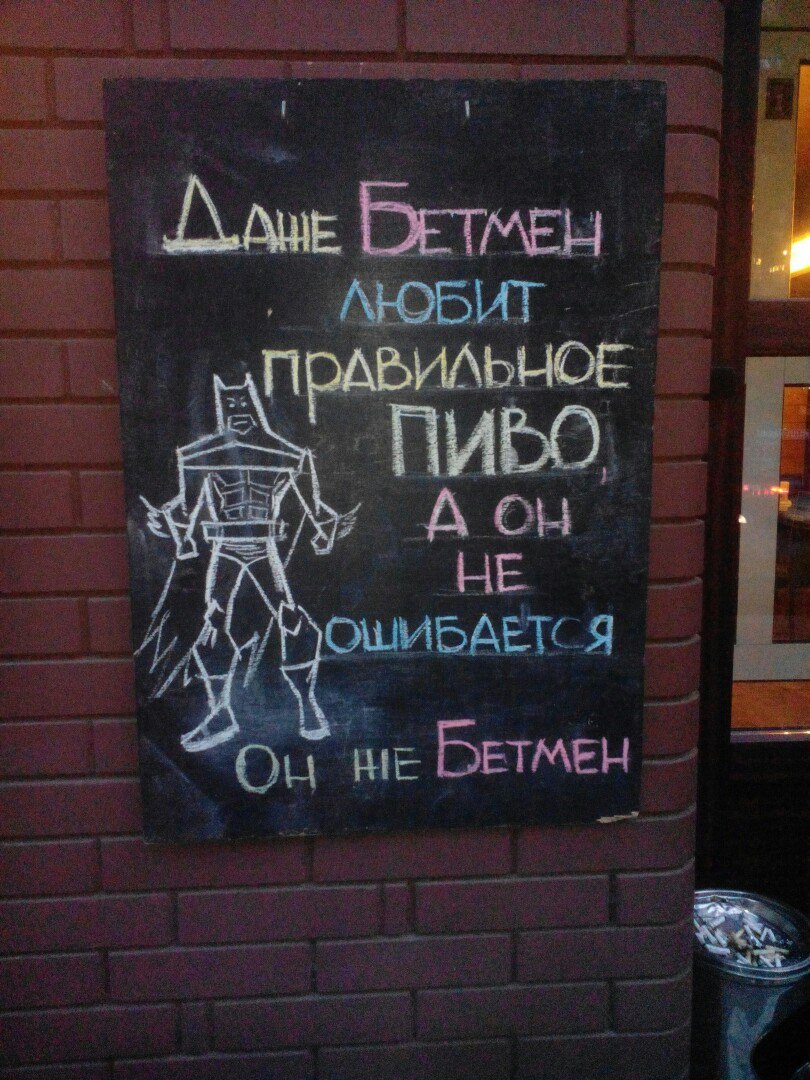 Даже Бетмен
любит
правильное
пиво,
а он
не
ошибается
Он же Бетмен